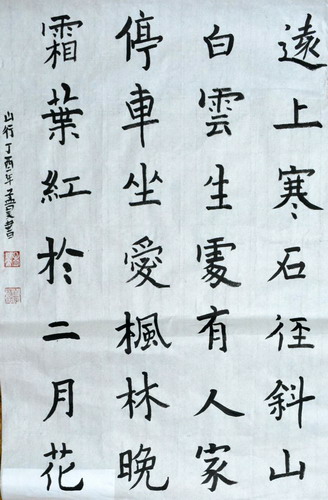 遠上寒石径斜山
白雲生處有人家
停車坐愛楓林晚
霜葉紅於二月花
山行丁酉年孟夏書